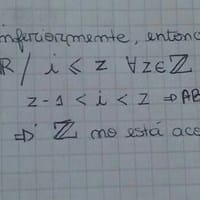 inferiormente, entonc
R / i ⩽ z ∀z∈ℤ
z-1 < i < z ⇒ AB
⇒ ℤ no está aco